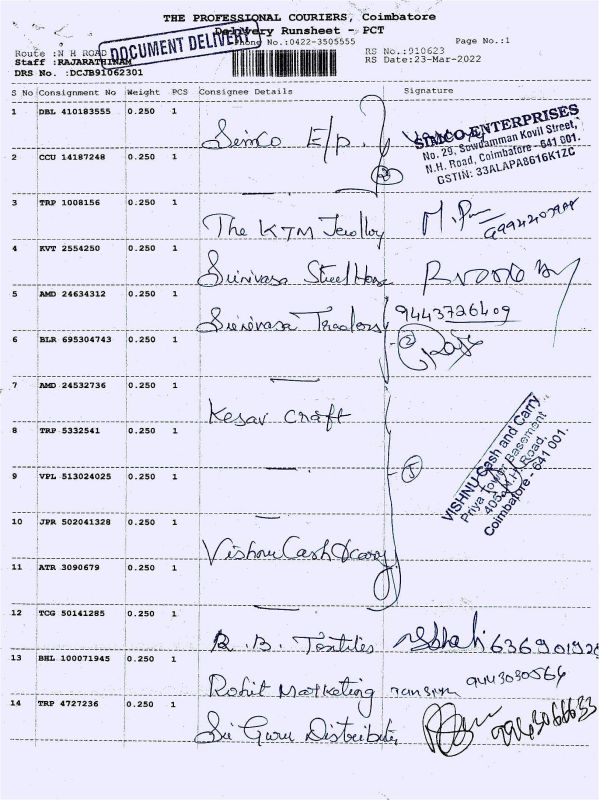 THE PROFESSIONAL COURIERS, Coimbatore
Delivery Runsheet - PCT
Phone No.:0422-3505555
Page No.:1
Route :N H ROAD
RS No.:910623
Staff :RAJARATHINAM
RS Date:23-Mar-2022
DRS No. :DCJB91062301
DOCUMENT DELIVERY
S No Consignment No Weight PCS Consignee Details Signature
1 DBL 410183555 0.250 1 Simco E/p.
SIMCO ENTERPRISES
No. 29, Sowdamman Kovil Street,
N.H. Road, Coimbatore - 641 001.
GSTIN: 33ALAPA8616K1ZC
2 CCU 14187248 0.250 1
3 TRP 1008156 0.250 1 The KTM Jewllry
4 KVT 2554250 0.250 1 Srinivasa Steel House
5 AMD 24634312 0.250 1 Srinivasa Traders 9443726409
6 BLR 695304743 0.250 1
7 AMD 24532736 0.250 1 Kesav Craft
8 TRP 5332541 0.250 1
VISHNU Cash and Carry
Priya Tower Basement
405, N.H. Road,
Coimbatore - 641 001.
9 VPL 513024025 0.250 1
10 JPR 502041328 0.250 1 Vishnu Cash & carry
11 ATR 3090679 0.250 1
12 TCG 50141285 0.250 1 R.B. Textiles
13 BHL 100071945 0.250 1 Rohit Marketing 9443030564
14 TRP 4727236 0.250 1 Sri Guru Distributers